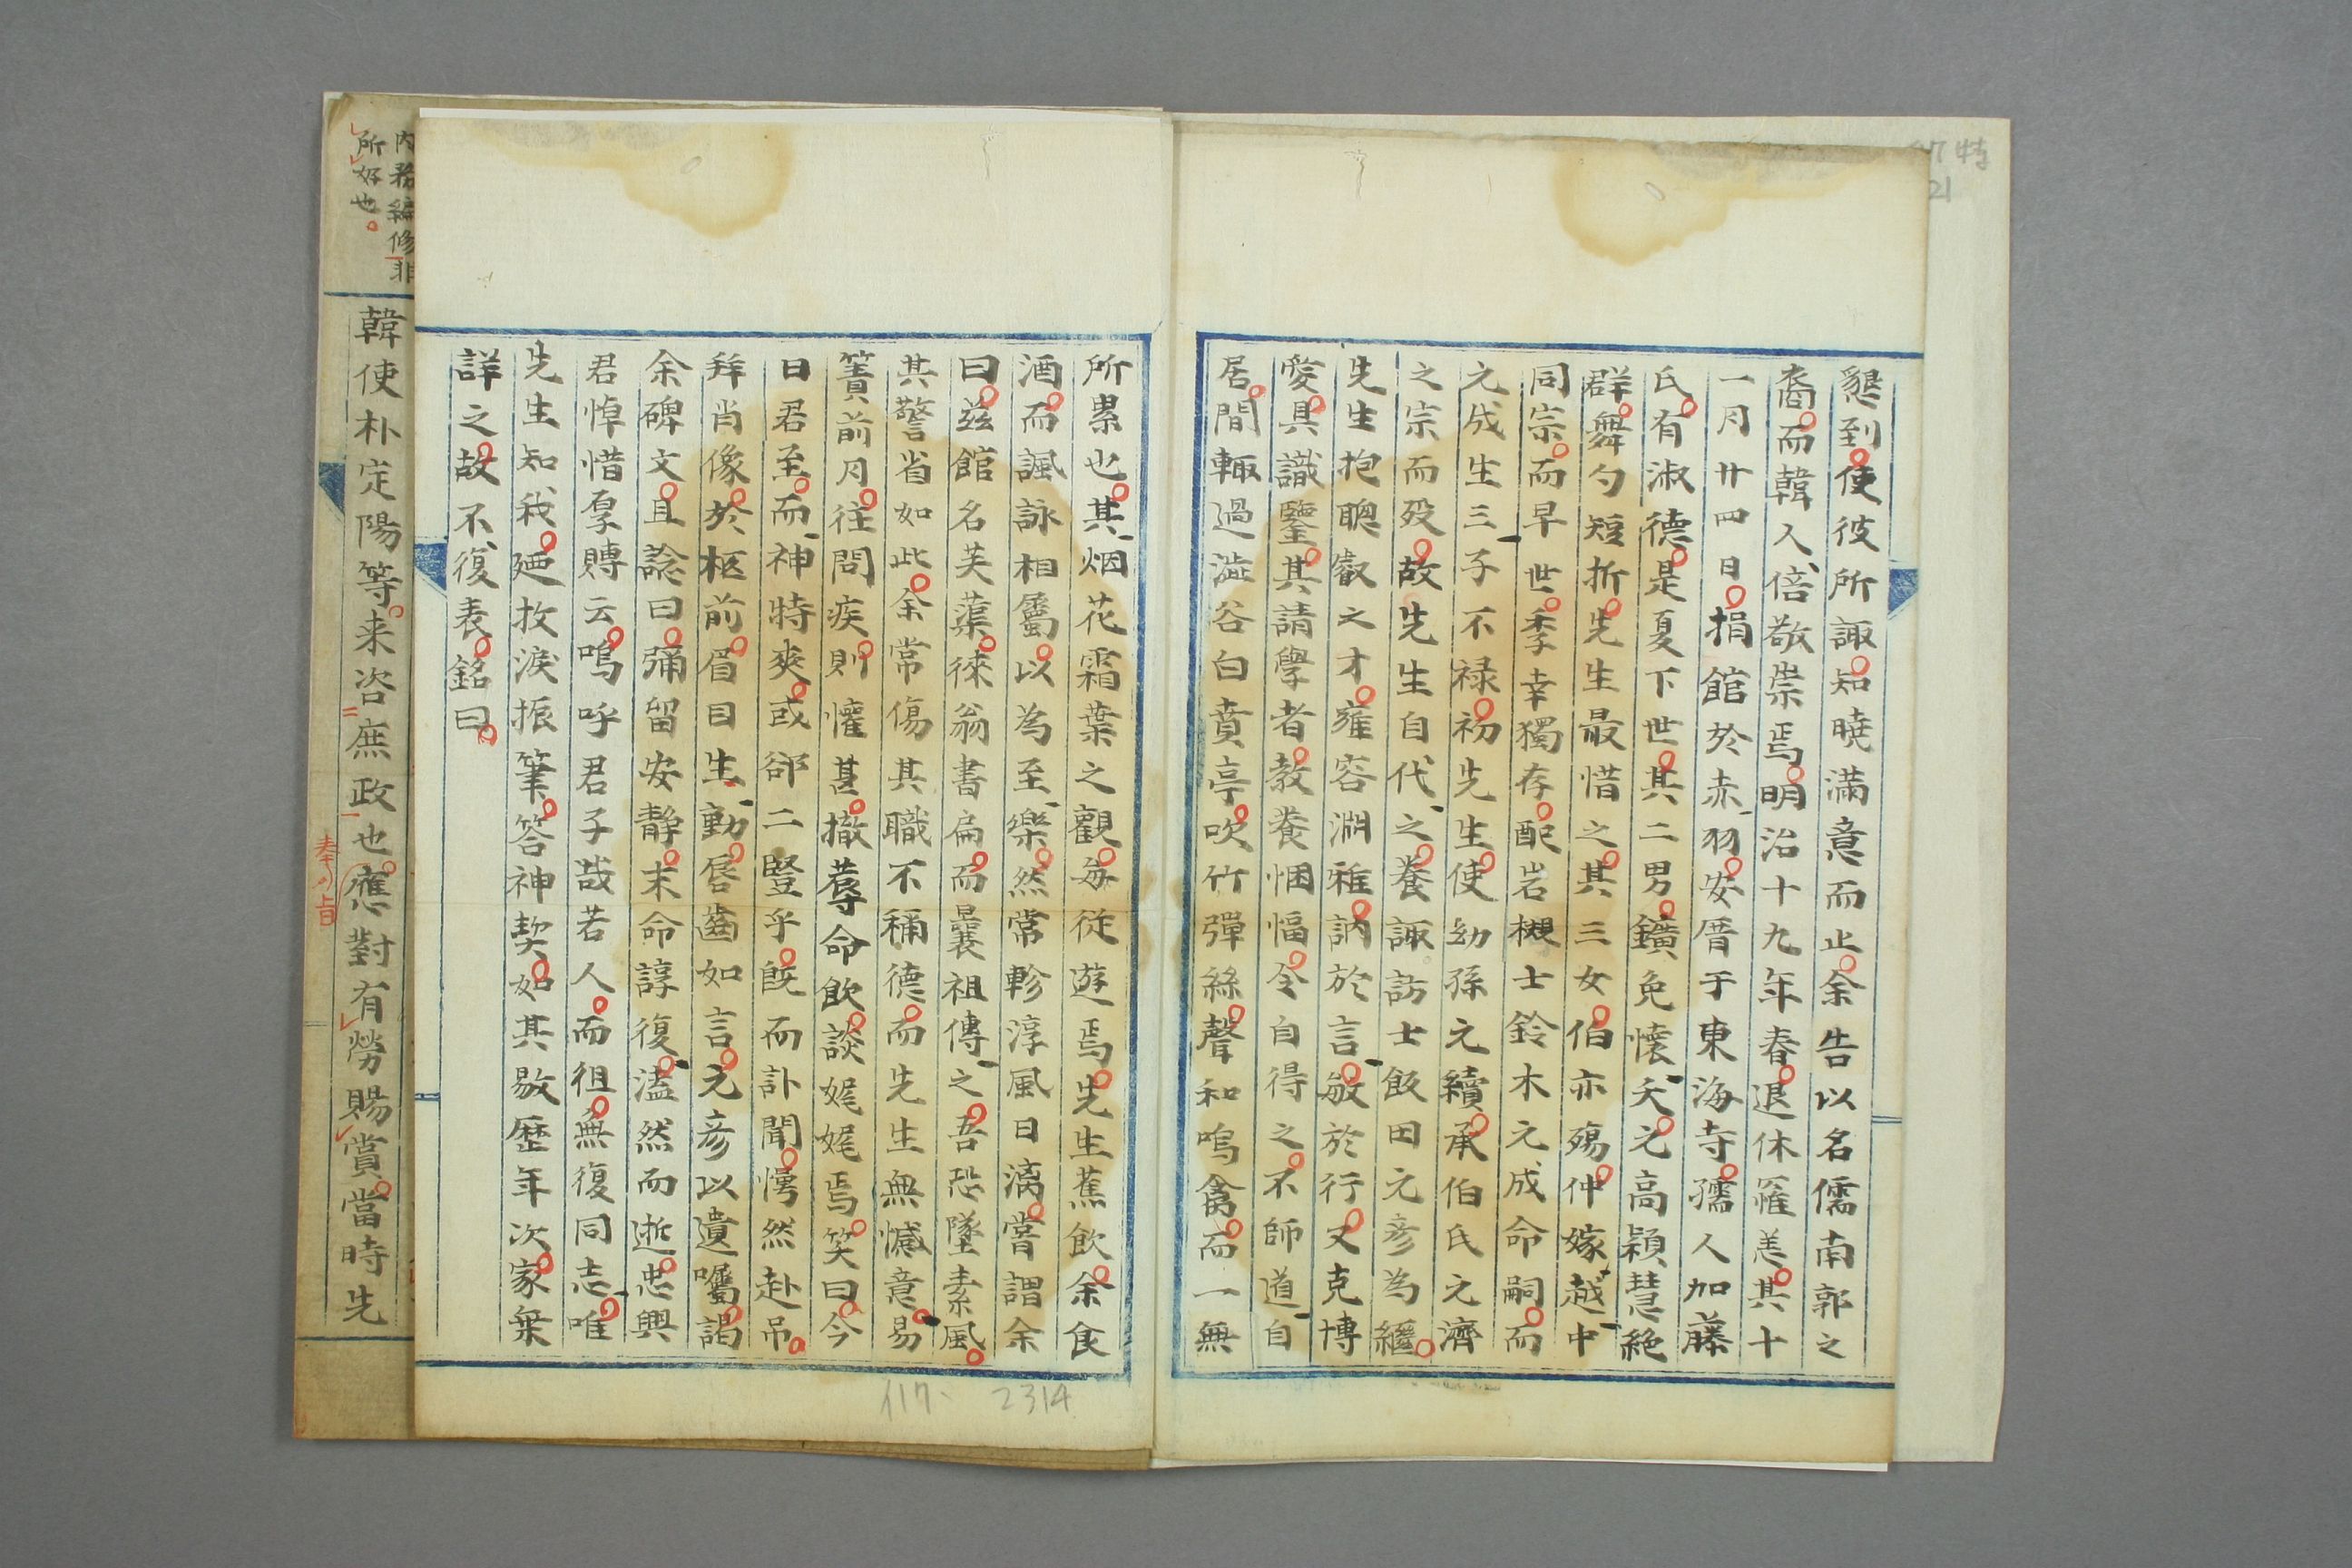 懇到使彼所諏知曉滿意而止余告以名儒南郭之
裔而韓人倍敬崇焉明治十九年春退休罹恙其十
一月廿四日捐館於赤羽安厝于東海寺孺人加藤
氏有淑德是夏下世其二男鐀免懷夭元高穎慧絶
群舞勺短折先生最惜之其三女伯亦殤仲嫁越中
同宗而早世季幸獨存配岩槻士鈴木元成命嗣而
元成生三子不禄初先生使幼孫元續承伯氏元濟
之宗而歿故先生自代之養諏訪士飯田元彦為繼
先生抱聰叡之才雍容淵雅訥於言敏於行又克博
愛具識鑒其請學者教養悃愊令自得之不師道自
居間輙過澁谷白賁亭吹竹彈絲聲和鳴禽而一無
所累也其烟花霜葉之觀每從遊焉先生蕉飲余食
酒而諷詠相屬以為至樂然常軫淳風日漓嘗謂余
曰茲館名芙蕖徠翁書扁而曩祖傳之吾恐墜素風
其警省如此余常傷其職不稱德而先生無憾意易
簀前月往問疾則懽甚撤蓐命飲談娓娓焉笑曰今
日君至而神特爽或郤二豎乎旣而訃聞愕然赴吊
拜肖像於柩前眉目生動唇齒如言元彦以遺囑謁
余碑文且諗曰彌留安靜末命諄復溘然而逝忠興
君悼惜厚賻云嗚呼君子哉若人而徂無復同志唯
先生知我廼抆淚振筆答神契如其敭歷年次家乗
詳之故不復表銘曰
内務編修非
所好也
韓使朴定陽等来咨庶政也應對有勞賜賞當時先
奉旨
117
2314
特
21